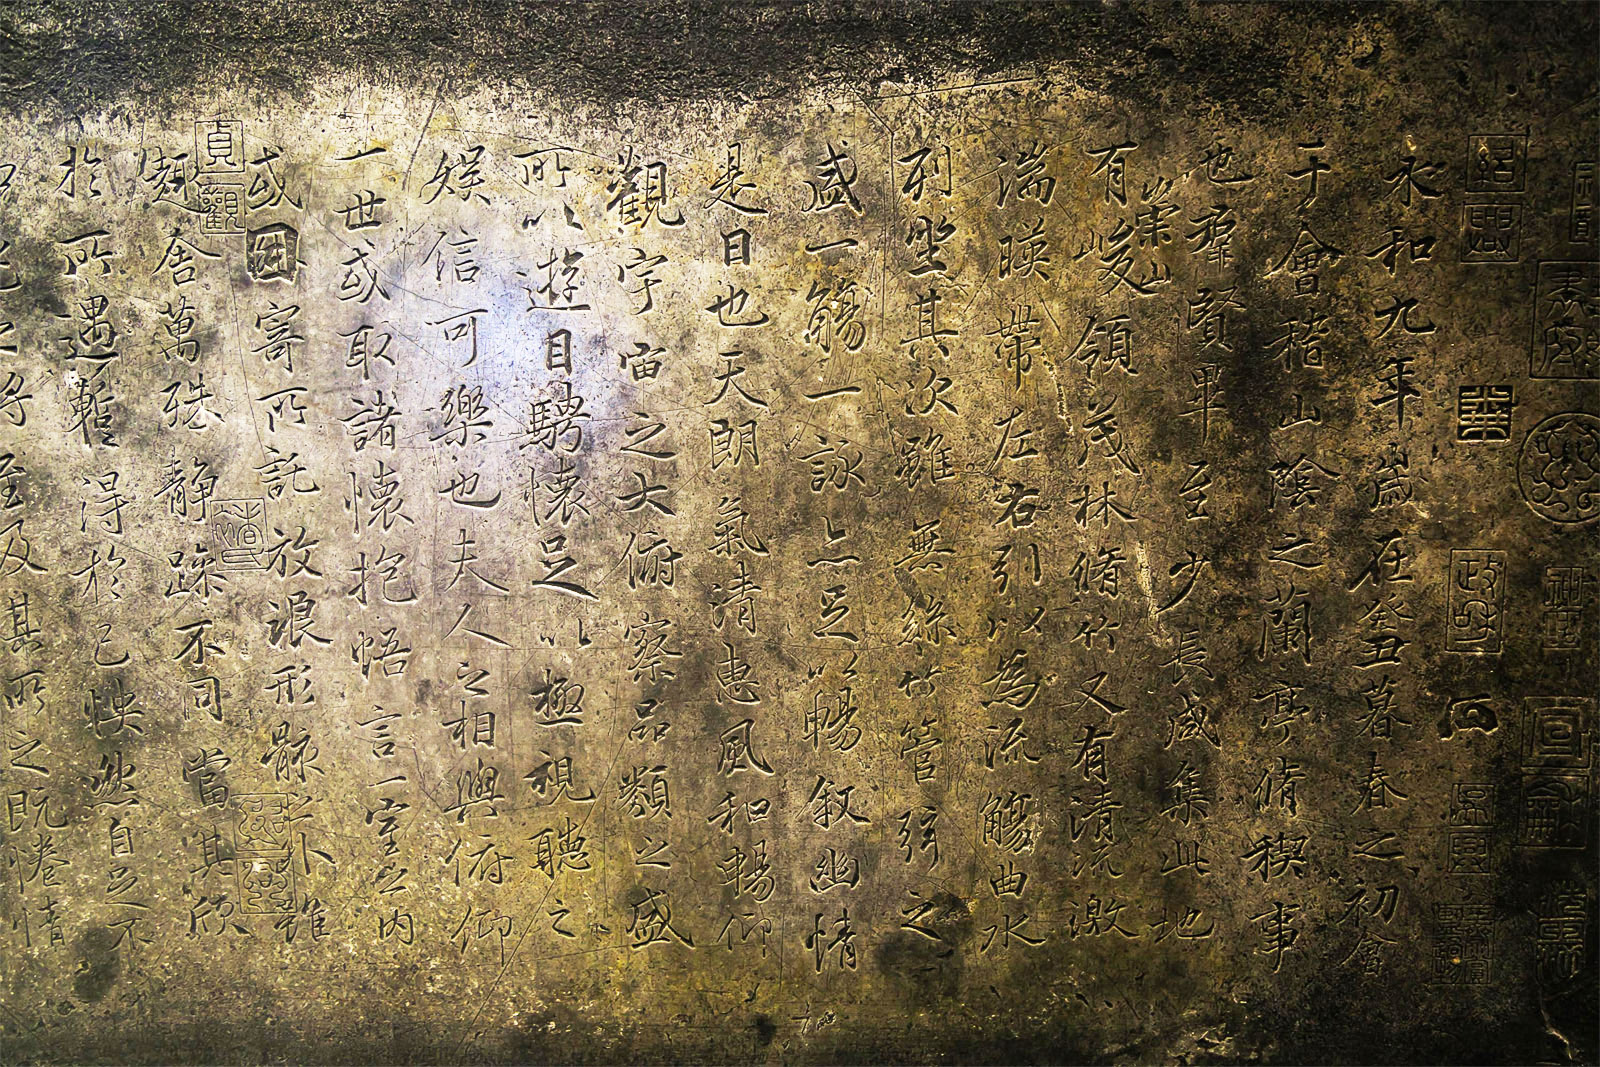 永和九年歲在癸丑暮春之初會
于會稽山陰之蘭亭脩稧事
也羣賢畢至少長咸集此地
崇山
有峻領茂林脩竹又有清流激
湍暎帶左右引以為流觴曲水
列坐其次雖無絲竹管弦之
盛一觴一詠亦足以暢叙幽情
是日也天朗氣清惠風和暢仰
觀宇宙之大俯察品類之盛
所以遊目騁懷足以極視聽之
娛信可樂也夫人之相與俯仰
一世或取諸懷抱悟言一室之內
或因寄所託放浪形骸之外雖
趣舍萬殊静躁不同當其欣
於所遇暫得於己怏然自足不
老之將至及其所之既惓情
貞觀
政和